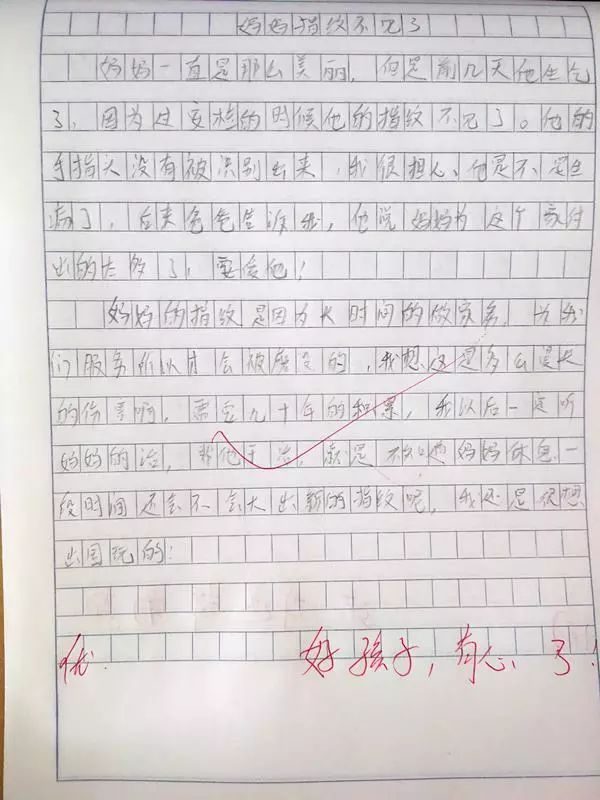 妈妈指纹不见了
妈妈一直是那么美丽，但是前几天他生气
了，因为过安检的时候他的指纹不见了。他的
手指头没有被识别出来，我很担心他是不是生
病了，后来爸爸告诉我，他说妈妈为这个家付
出的太多了，要爱他！
妈妈的指纹是因为长时间的做家务，为我
们服务所以才会被磨的，我想这是多么漫长
的伤害啊，需要几十年的积累，我以后一定听
妈妈的话，帮他干活，就是不知道妈妈休息一
段时间还会不会长出新的指纹呢，我还是很想
出国玩的！
优 好孩子，有心了！